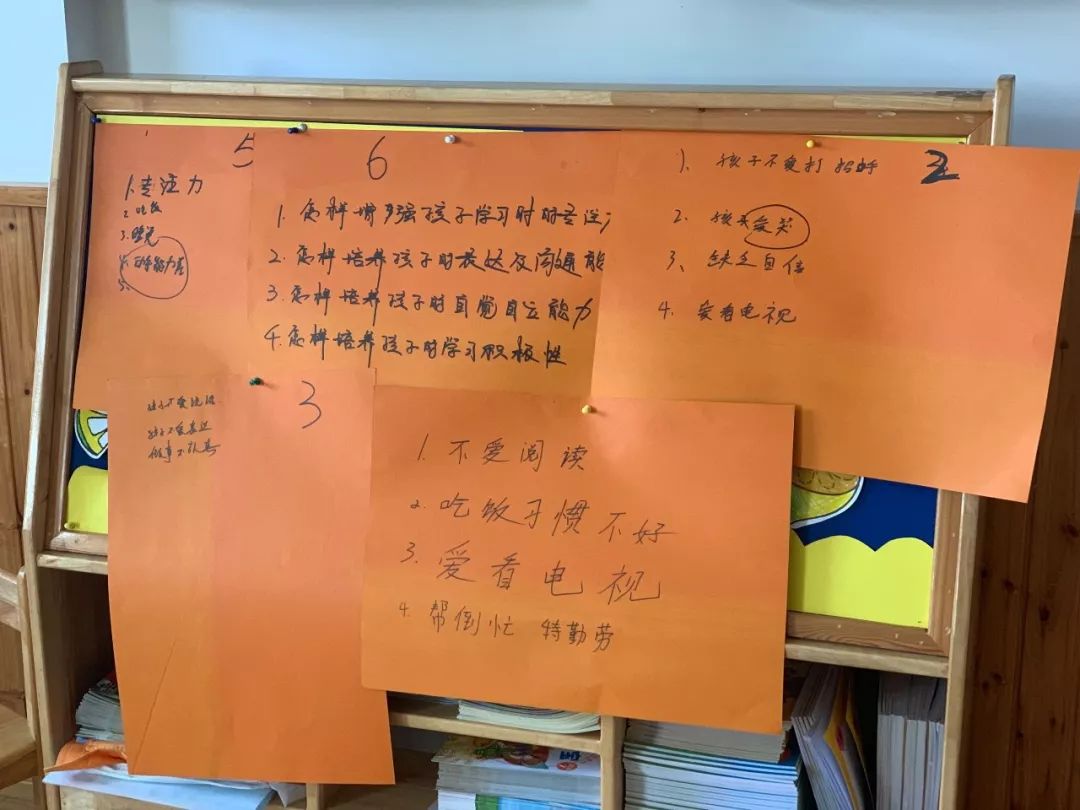 5
1.专注力
2.吃饭
3.睡觉
4.动手能力差
5.
6
1.怎样增强孩子学习时的专注
2.怎样培养孩子的表达及沟通能
3.怎样培养孩子的自觉自立能力
4.怎样培养孩子的学习积极性
2
1、孩子不爱打招呼
2.孩子爱哭
3、缺乏自信
4.爱看电视
3
做事不认真
1.不爱阅读
2.吃饭习惯不好
3.爱看电视
4.帮倒忙 特勤劳